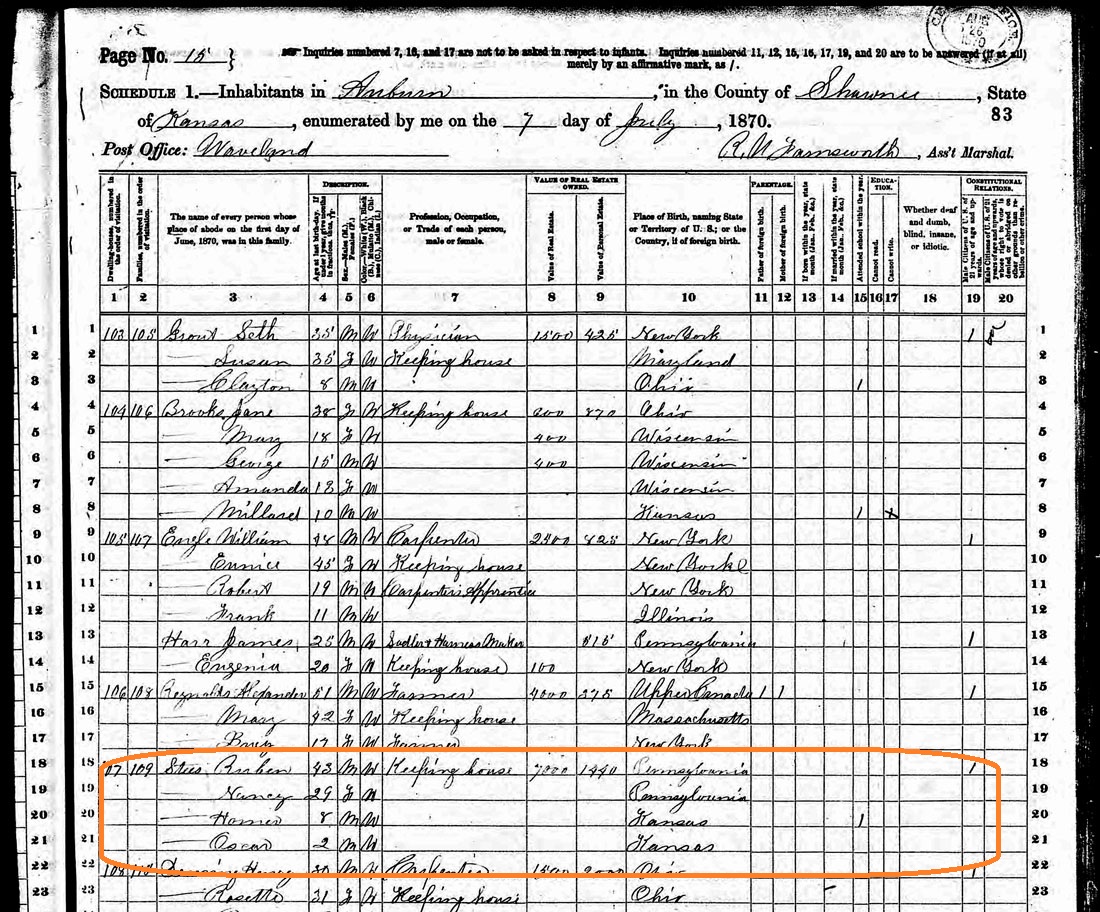 Page No. 15 } Inquiries numbered 7, 16, and 17 are not to be asked in respect to infants. Inquiries numbered 11, 12, 15, 16, 17, 19, and 20 are to be answered (if at all)
merely by an affirmative mark, as /.
AUG 26
SCHEDULE 1.—Inhabitants in Auburn, in the County of Shawnee, State
of Kansas, enumerated by me on the 7 day of July, 1870.
83
Post Office: Waveland
Farnsworth, Ass't Marshal.
Dwelling-houses, numbered in the order of visitation.
Families, numbered in the order of visitation.
The name of every person whose place of abode on the first day of June, 1870, was in this family.
DESCRIPTION.
Age at last birth-day. If under 1 year, give months in fractions, thus,
Sex.—Males (M.), Females (F.)
Color.—White (W.), Black (B.), Mulatto (M.), Chinese (C.), Indian (I.)
Profession, Occupation, or Trade of each person, male or female.
VALUE OF REAL ESTATE OWNED.
Value of Real Estate.
Value of Personal Estate.
Place of Birth, naming State or Territory of U. S.; or the Country, if of foreign birth.
PARENTAGE.
Father of foreign birth.
Mother of foreign birth.
If born within the year, state month (Jan. Feb. &c.)
If married within the year, state month (Jan. Feb. &c.)
EDUCATION.
Attended school within the year.
Cannot read.
Cannot write.
Whether deaf and dumb, blind, insane, or idiotic.
CONSTITUTIONAL RELATIONS.
Male Citizens of U. S. of 21 years of age and upwards.
Male Citizens of U. S. of 21 years of age and upwards, whose right to vote is denied or abridged on other grounds than rebellion or other crime.
1 2 3 4 5 6 7 8 9 10 11 12 13 14 15 16 17 18 19 20
1 1 103 105 Grout Seth 35 M W Physician 1500 425 New York 1 1
2 2 — Susan 35 F W Keeping house Maryland 2
3 3 — Clayton 8 M W Ohio 1 3
4 4 104 106 Brooks Jane 38 F W Keeping house 200 870 Ohio 4
5 5 — Mary 18 F W 400 Wisconsin 5
6 6 — George 15 M W 400 Wisconsin 6
7 7 — Amanda 13 F W Wisconsin 7
8 8 — Millard 10 M W Kansas 1 x 8
9 9 105 107 Engle William 48 M W Carpenter 2400 825 New York 1 9
10 10 — Eunice 45 F W Keeping house New York 10
11 11 — Robert 19 M W Carpenter's Apprentice New York 11
12 12 — Frank 11 M W Illinois 12
13 13 Harr James 25 M W Sadler & Harness Maker 815 Pennsylvania 1 13
14 14 — Eugenia 20 F W Keeping house 100 New York 14
15 15 106 108 Reynolds Alexander 51 M W Farmer 4000 275 Upper Canada 1 1 1 15
16 16 — Mary 42 F W Keeping house Massachusetts 16
17 17 — 17 F W Farmer New York 17
18 18 07 109 Stees Ruben 43 M W Keeping house 7000 1440 Pennsylvania 1 18
19 19 — Nancy 29 F W Pennsylvania 19
20 20 — Homer 8 M W Kansas 1 20
21 21 — Oscar 2 M W Kansas 21
22 22 108 110 Henry 30 M W Carpenter 1500 2000 Ohio 1 22
23 23 — Rosetta 31 F W Keeping house Ohio 23